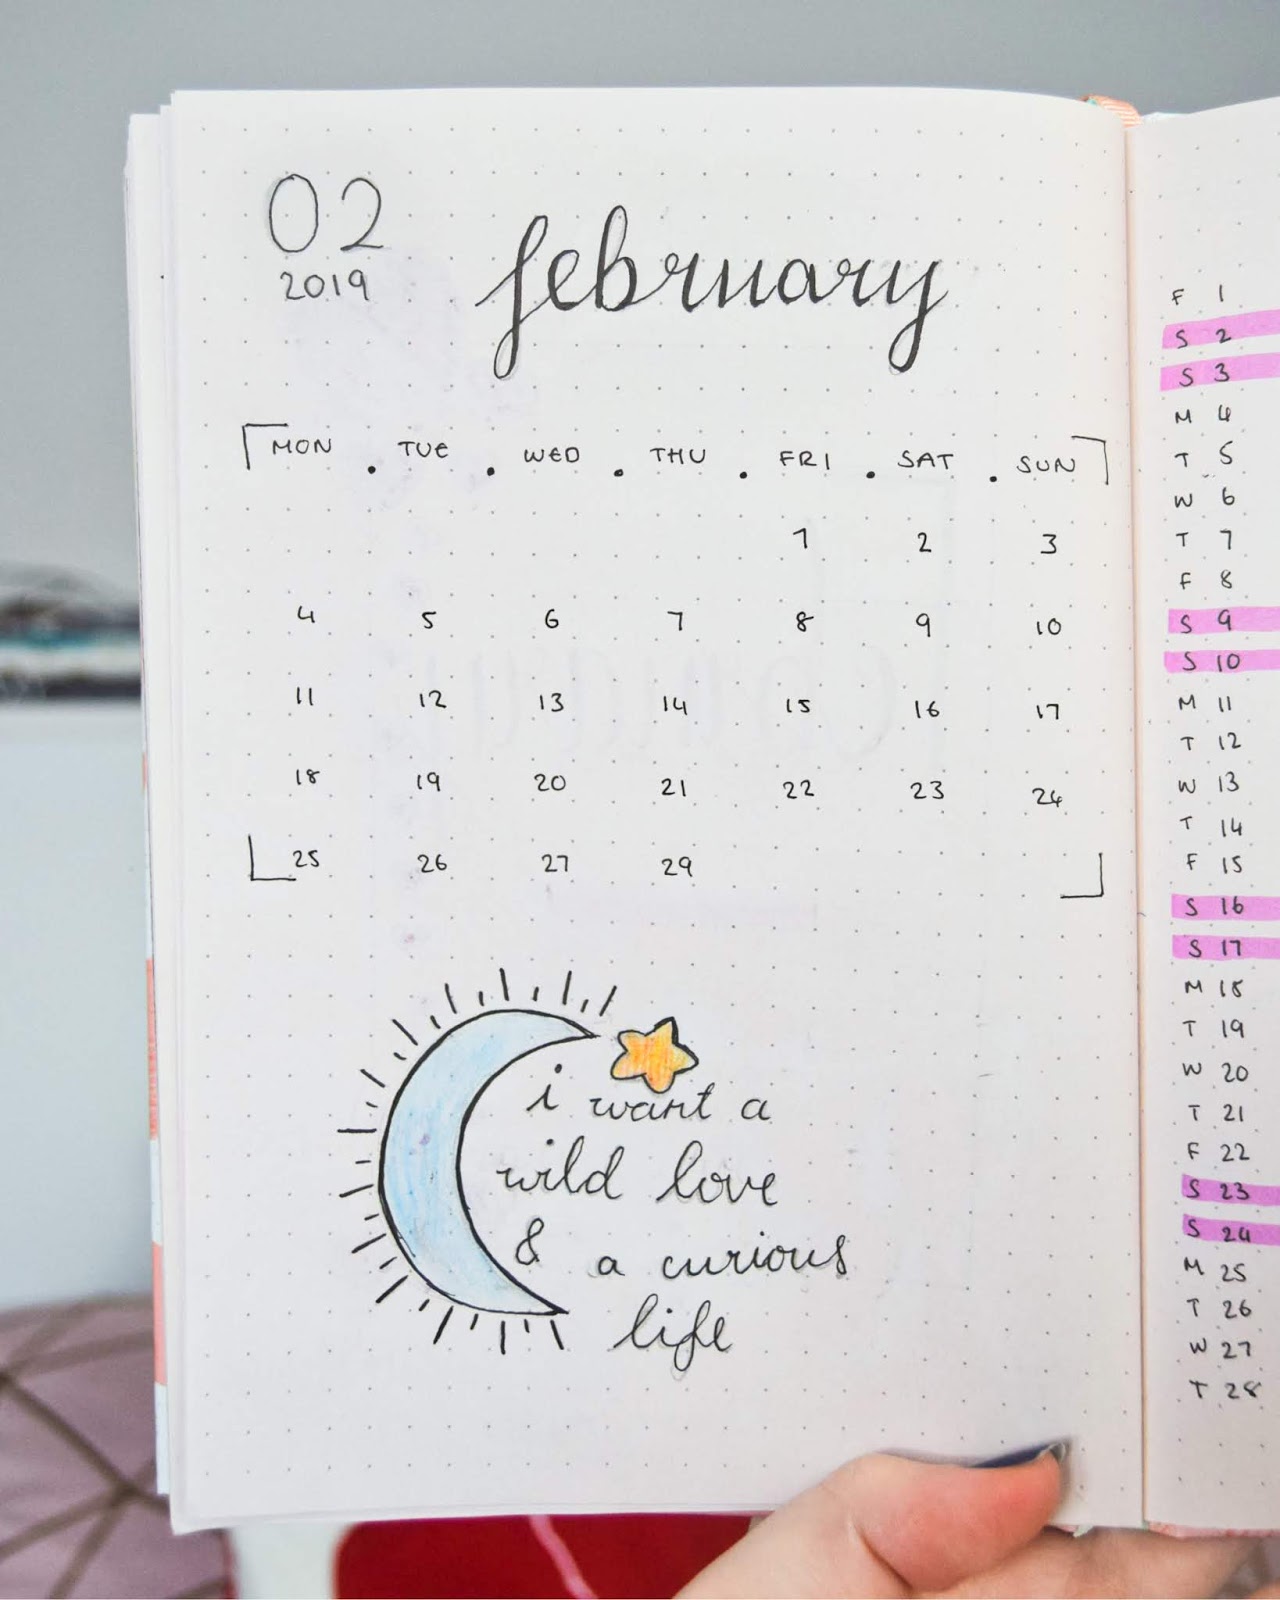 02
2019
february
MON . TUE . WED . THU . FRI . SAT . SUN
1 2 3
4 5 6 7 8 9 10
11 12 13 14 15 16 17
18 19 20 21 22 23 24
25 26 27 29
i want a
wild love
& a curious
life
F 1
S 2
S 3
M 4
T 5
W 6
T 7
F 8
S 9
S 10
M 11
T 12
W 13
T 14
F 15
S 16
S 17
M 18
T 19
W 20
T 21
F 22
S 23
S 24
M 25
T 26
W 27
T 28